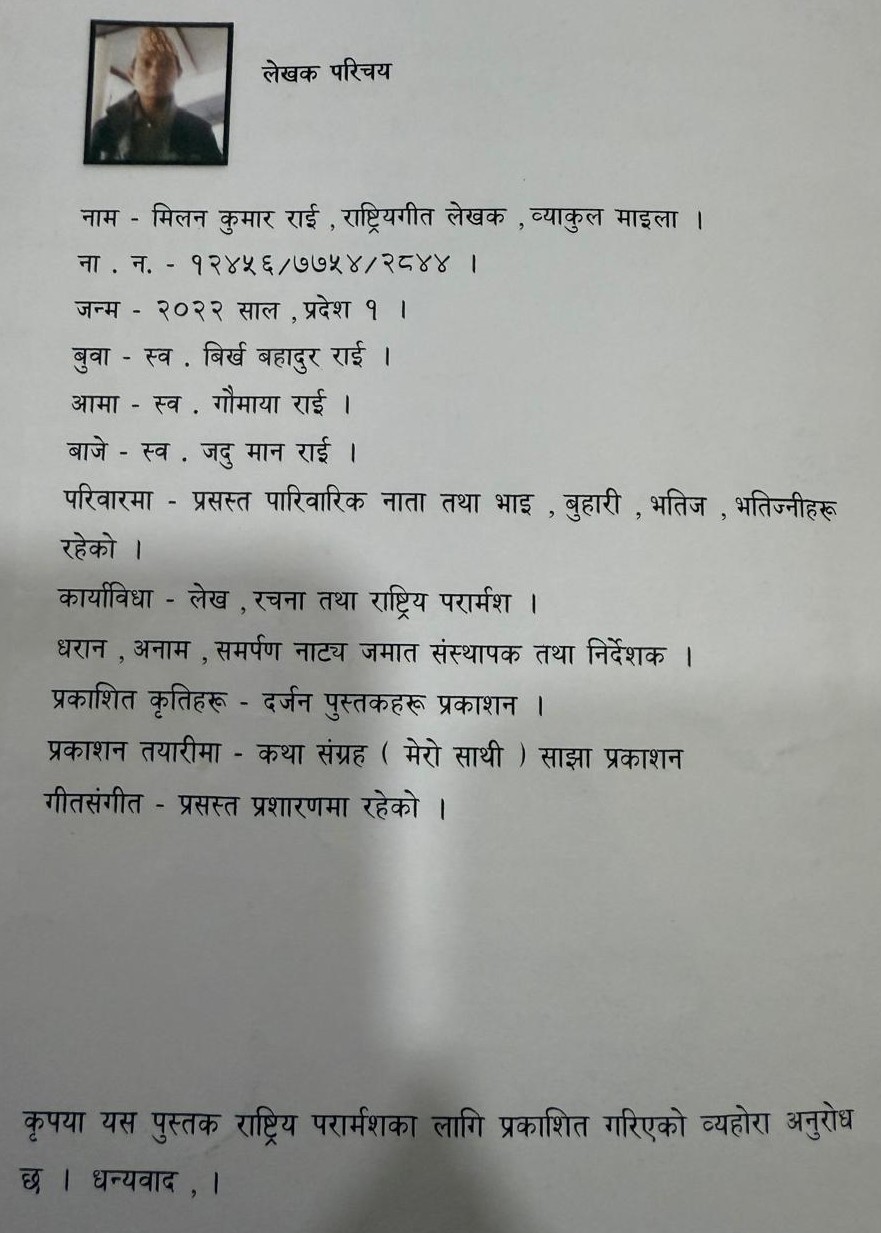 लेखक परिचय
नाम - मिलन कुमार राई , राष्ट्रियगीत लेखक , व्याकुल माइला ।
ना . न. - १२४५६/७७५४/२८४४ ।
जन्म - २०२२ साल , प्रदेश १ ।
बुवा - स्व . बिर्ख बहादुर राई ।
आमा - स्व . गौमाया राई ।
बाजे - स्व . जदु मान राई ।
परिवारमा - प्रसस्त पारिवारिक नाता तथा भाइ , बुहारी , भतिज , भतिज्नीहरू
रहेको ।
कार्याविधा - लेख , रचना तथा राष्ट्रिय परार्मश ।
धरान , अनाम , समर्पण नाट्य जमात संस्थापक तथा निर्देशक ।
प्रकाशित कृतिहरू - दर्जन पुस्तकहरू प्रकाशन ।
प्रकाशन तयारीमा - कथा संग्रह ( मेरो साथी ) साझा प्रकाशन
गीतसंगीत - प्रसस्त प्रशारणमा रहेको ।
कृपया यस पुस्तक राष्ट्रिय परार्मशका लागि प्रकाशित गरिएको व्यहोरा अनुरोध
छ । धन्यवाद , ।